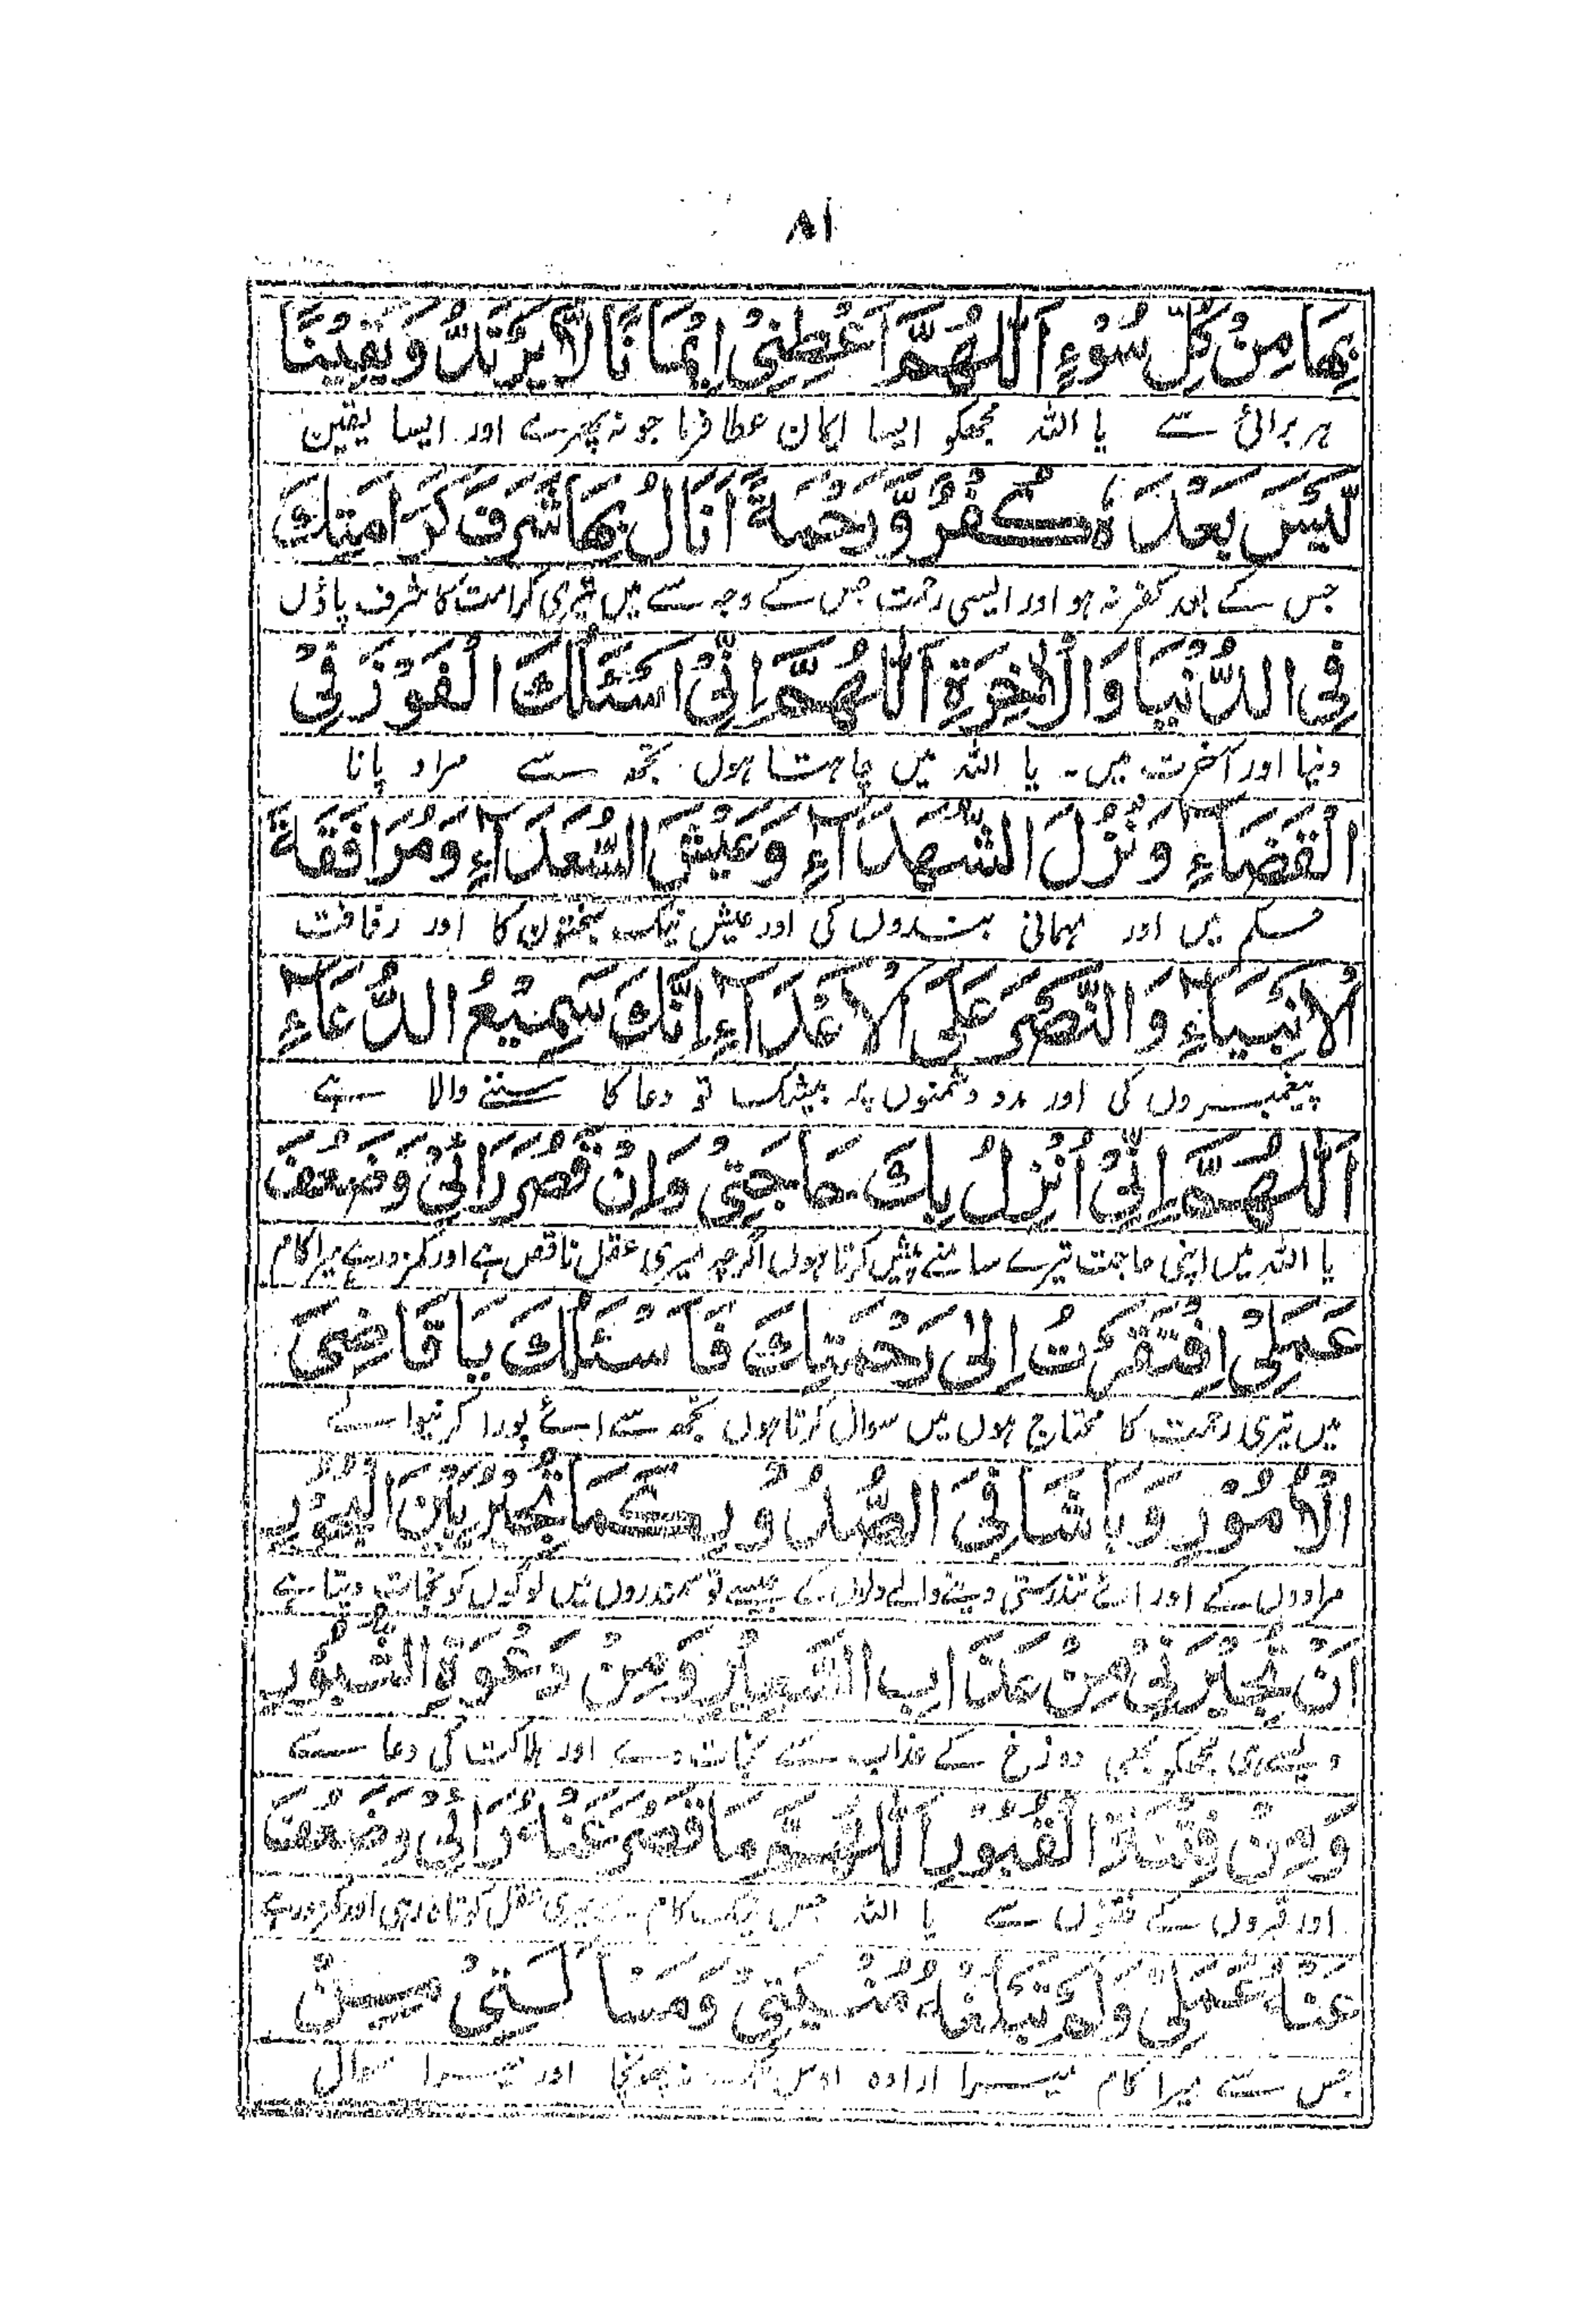 ٨١
بِهَا مِنْ كُلِّ سُوْءٍ اَللّٰهُمَّ اَعْطِنِىْ اِيْمَانًا لَّا يَرْتَدُّ وَيَقِيْنًا
ہر برائی سے یا اللہ مجھکو ایسا ایمان عطا فرما جو نہ پھرے اور ایسا یقین
لَّيْسَ بَعْدَهٗ كُفْرٌ وَّرَحْمَةً اَنَالُ بِهَا شَرَفَ كَرَامَتِكَ
جس کے بعد کفر نہ ہو اور ایسی رحمت جس کے وجہ سے میں تیری کرامت کا شرف پاؤں
فِى الدُّنْيَا وَالْاٰخِرَةِ اَللّٰهُمَّ اِنِّىْ اَسْئَلُكَ الْفَوْزَ فِىْ
دنیا اور آخرت میں۔ یا اللہ میں چاہتا ہوں تجھ سے مراد پانا
الْقَضَآءِ وَنُزُلَ الشُّهَدَآءِ وَعَيْشَ السُّعَدَآءِ وَمُرَافَقَةَ
حکم میں اور مہمانی کی اور عیش نیک بختوں کا اور رفاقت
الْاَنْبِيَآءِ وَالنَّصْرَ عَلَى الْاَعْدَآءِ اِنَّكَ سَمِيْعُ الدُّعَآءِ
پیغمبروں کی اور مدد دشمنوں پر بیشک تو دعا کا سننے والا ہے
اَللّٰهُمَّ اِنِّىْ اُنْزِلُ بِكَ حَاجَتِىْ وَاِنْ قَصُرَ رَائِىْ وَضَعُفَ
یا اللہ میں اپنی حاجت تیرے سامنے پیش کرتا ہوں اگرچہ میری عقل ناقص ہے اور کمزور ہے میرا کام
عَمَلِىْ اِفْتَقَرْتُ اِلٰى رَحْمَتِكَ فَاَسْئَلُكَ يَا قَاضِىَ
میں تیری رحمت کا محتاج ہوں میں سوال کرتا ہوں تجھ سے اے پورا کرنیوالے
الْاُمُوْرِ وَيَا شَافِىَ الصُّدُوْرِ كَمَا تُجِيْرُ بَيْنَ الْبُحُوْرِ
مرادوں کے اور اے تندرستی دینے والے دلوں کے جیسے تو سمندروں میں لوگوں کو نجات دیتا ہے
اَنْ تُجِيْرَنِىْ مِنْ عَذَابِ السَّعِيْرِ وَمِنْ دَعْوَةِ الثُّبُوْرِ
ویسے ہی مجھکو بھی دوزخ کے عذاب سے نجات دے اور ہلاکت کی دعا سے
وَمِنْ فِتْنَةِ الْقُبُوْرِ اَللّٰهُمَّ مَا قَصُرَ عَنْهُ رَائِىْ وَضَعُفَ
اور قبروں کے فتنوں سے یا اللہ جس نیک کام میری عقل کوتاہ رہی اور کمزور ہے
عَنْهُ عَمَلِىْ وَلَمْ تَبْلُغْهُ مُنْيَتِىْ وَمَسْأَلَتِىْ مِنْ
جس سے میرا کام میرا ارادہ اوس نہ پہونچا اور میرا سوال